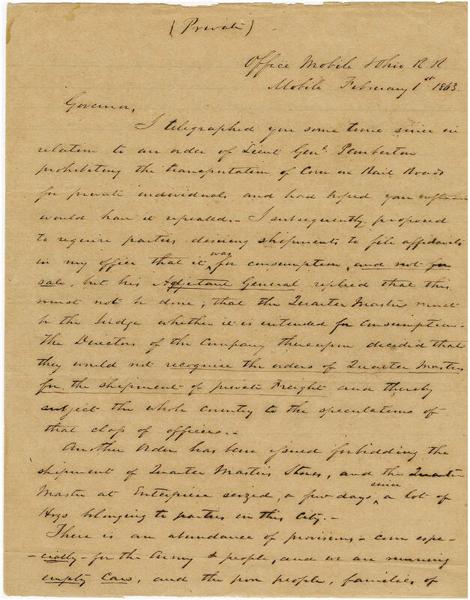 (Private)
Office Mobile & Ohio R. R
Mobile February 1st 1863.
Governor,
I telegraphed you some time since in
relation to an order of Lieut Genl. Pemberton
prohibiting the transportation of Corn on Rail Roads
for private individuals and had hoped your influence
would have it repealed. I subsequently proposed
to require parties desiring shipments to file affidavits
in my office that it was for consumption, and not for
sale, but his Adjutant General replied that this
must not be done, that the Quarter Master must
be the Judge whether it is intended for consumption.
The Directors of the Company thereupon decided that
they would not recognise the orders of Quarter Masters
for the shipment of private Freight and thereby
subject the whole country to the speculations of
that class of officers.-
Another Order has been issued forbidding the
shipment of Quarter Masters Stores, and the Quarter
Master at Enterprise seized, a few days since a lot of
Hogs belonging to parties in this City.-
There is an abundance of provisions - corn espe-
-cially - for the Army & people, and we are running
empty Cars, and the poor people, families of